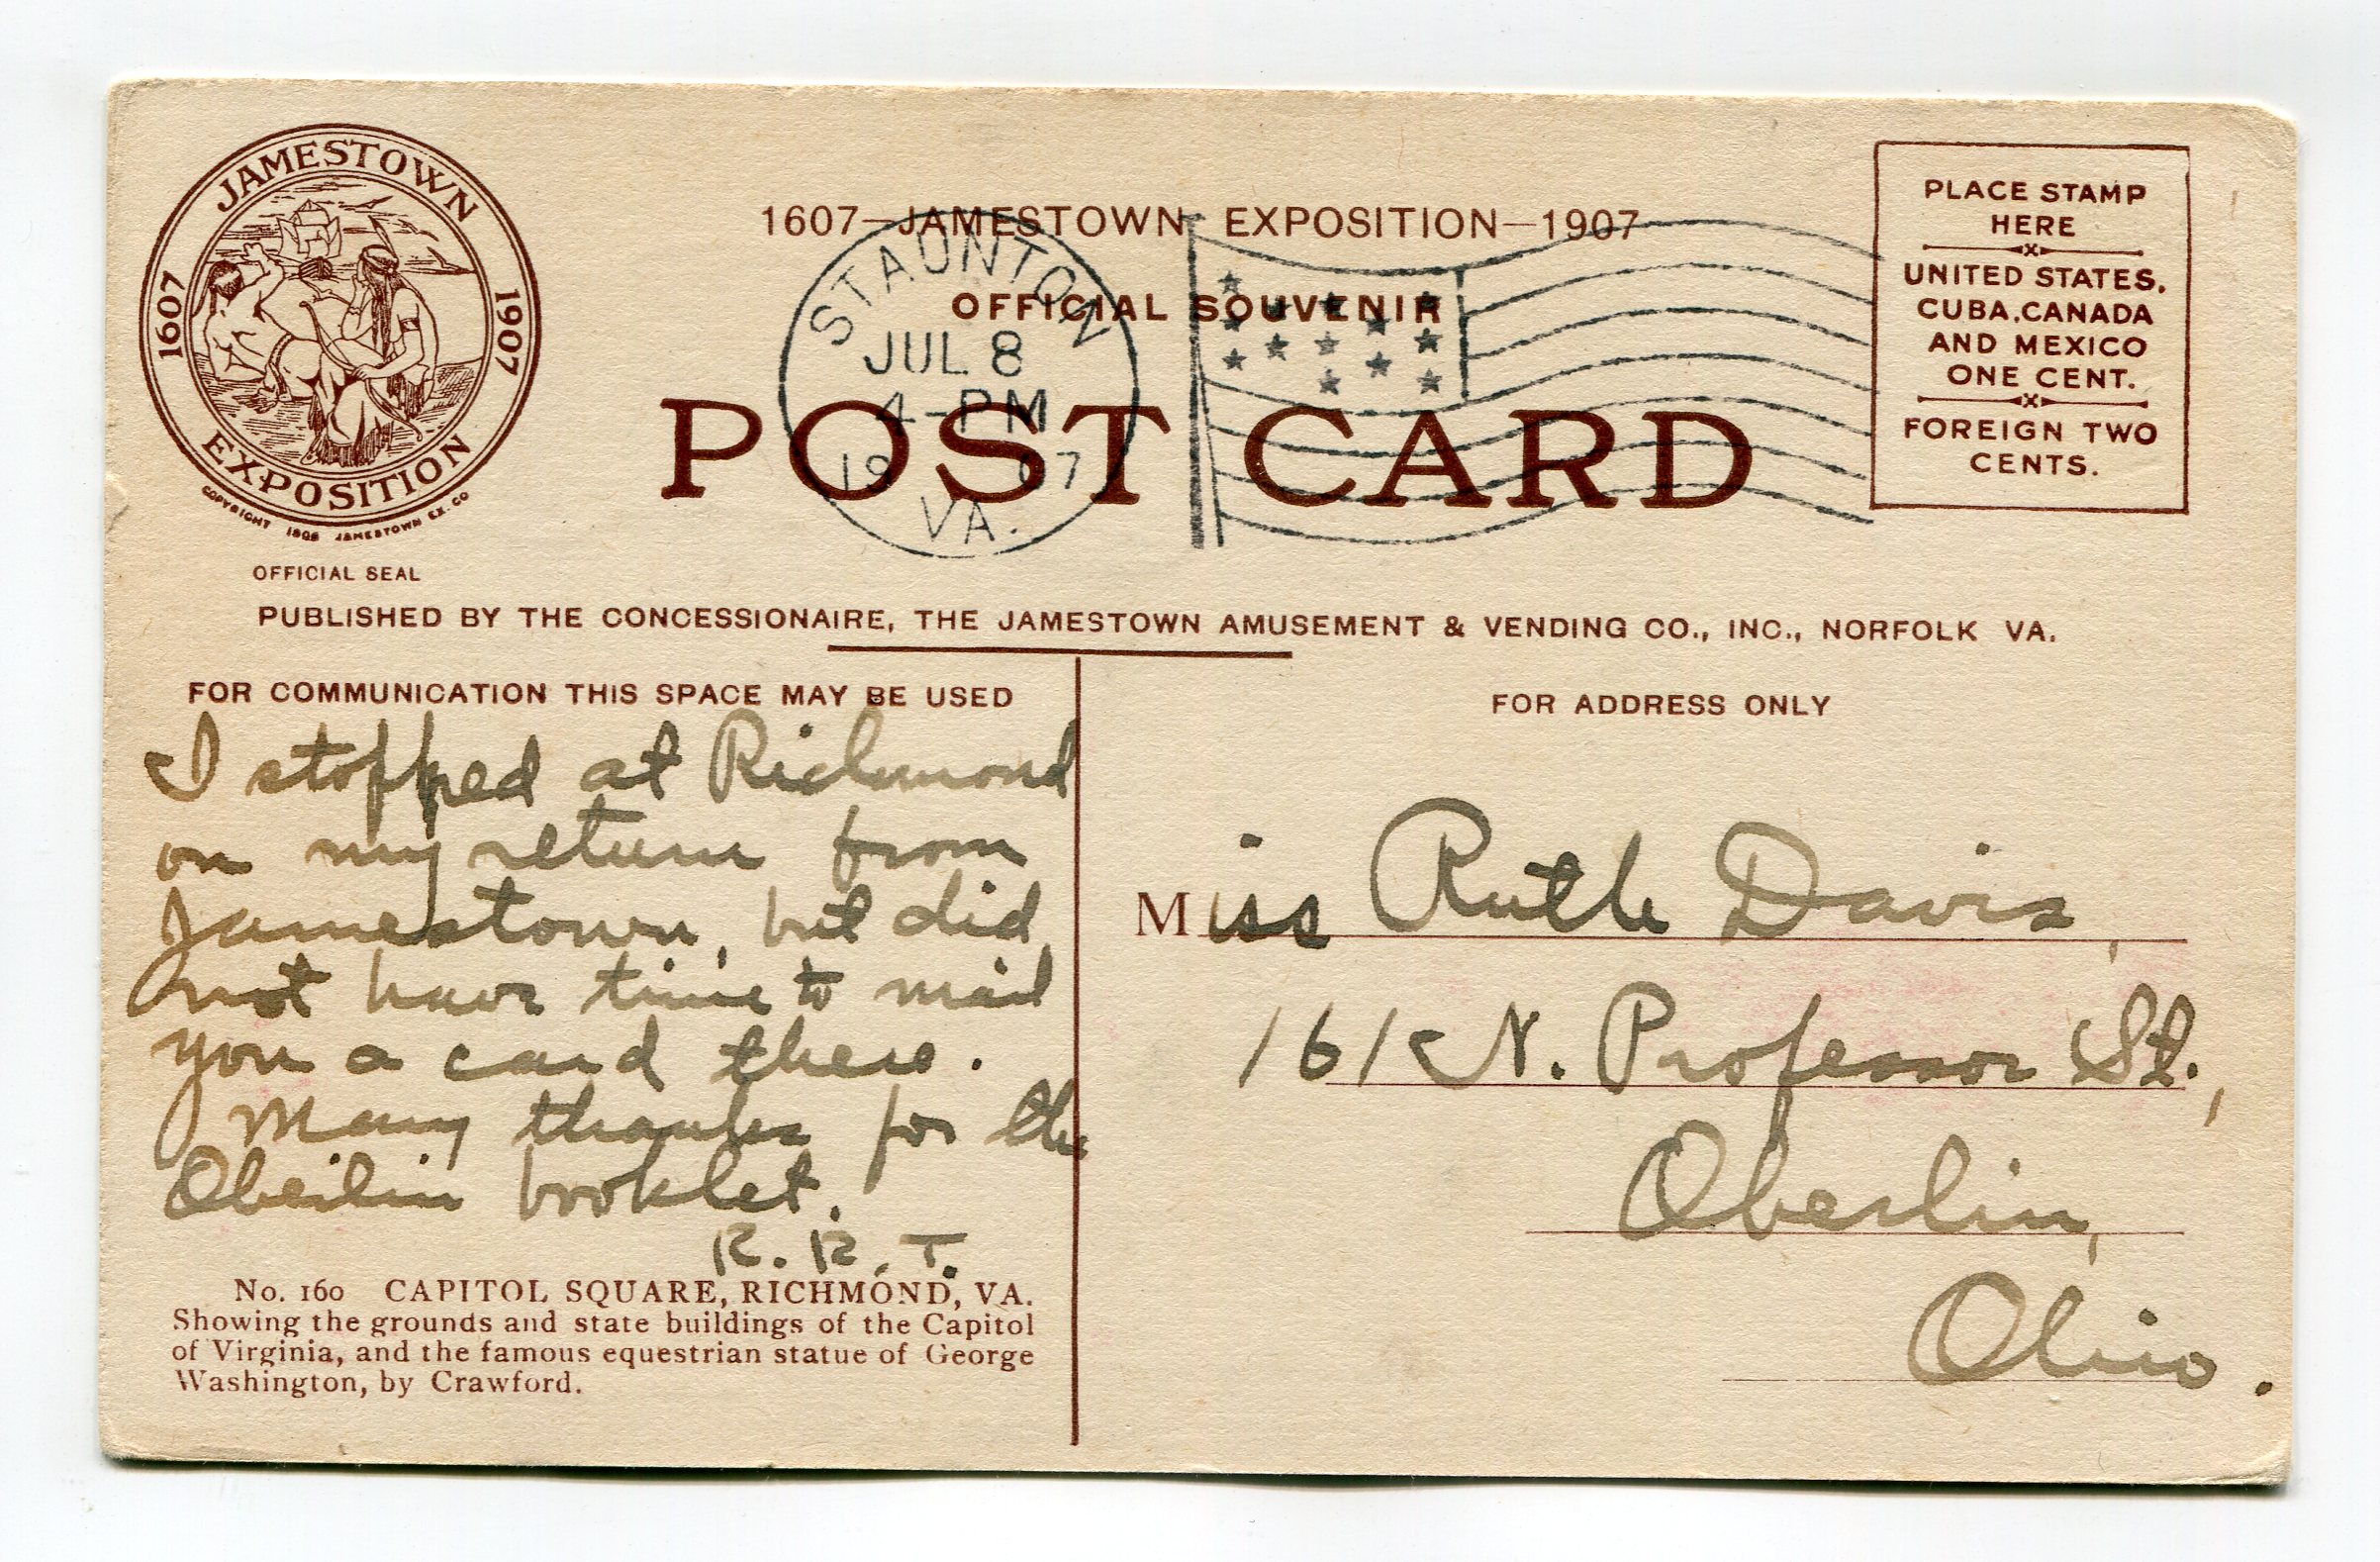 JAMESTOWN
1607
1907
EXPOSITION
COPYRIGHT 1906 JAMESTOWN EX. CO
OFFICIAL SEAL
1607—JAMESTOWN EXPOSITION—1907
OFFICIAL SOUVENIR
POST CARD
STAUNTON
JUL 8
4-PM
1907
VA.
PLACE STAMP
HERE
UNITED STATES,
CUBA, CANADA
AND MEXICO
ONE CENT.
FOREIGN TWO
CENTS.
PUBLISHED BY THE CONCESSIONAIRE, THE JAMESTOWN AMUSEMENT & VENDING CO., INC., NORFOLK VA.
FOR COMMUNICATION THIS SPACE MAY BE USED
I stopped at Richmond
on my return from
Jamestown, but did
not have time to mail
you a card there.
Many thanks for the
Oberlin booklet.
R. R. T.
No. 160 CAPITOL SQUARE, RICHMOND, VA.
Showing the grounds and state buildings of the Capitol
of Virginia, and the famous equestrian statue of George
Washington, by Crawford.
FOR ADDRESS ONLY
Miss Ruth Davis,
161 N. Professor St.,
Oberlin,
Ohio.